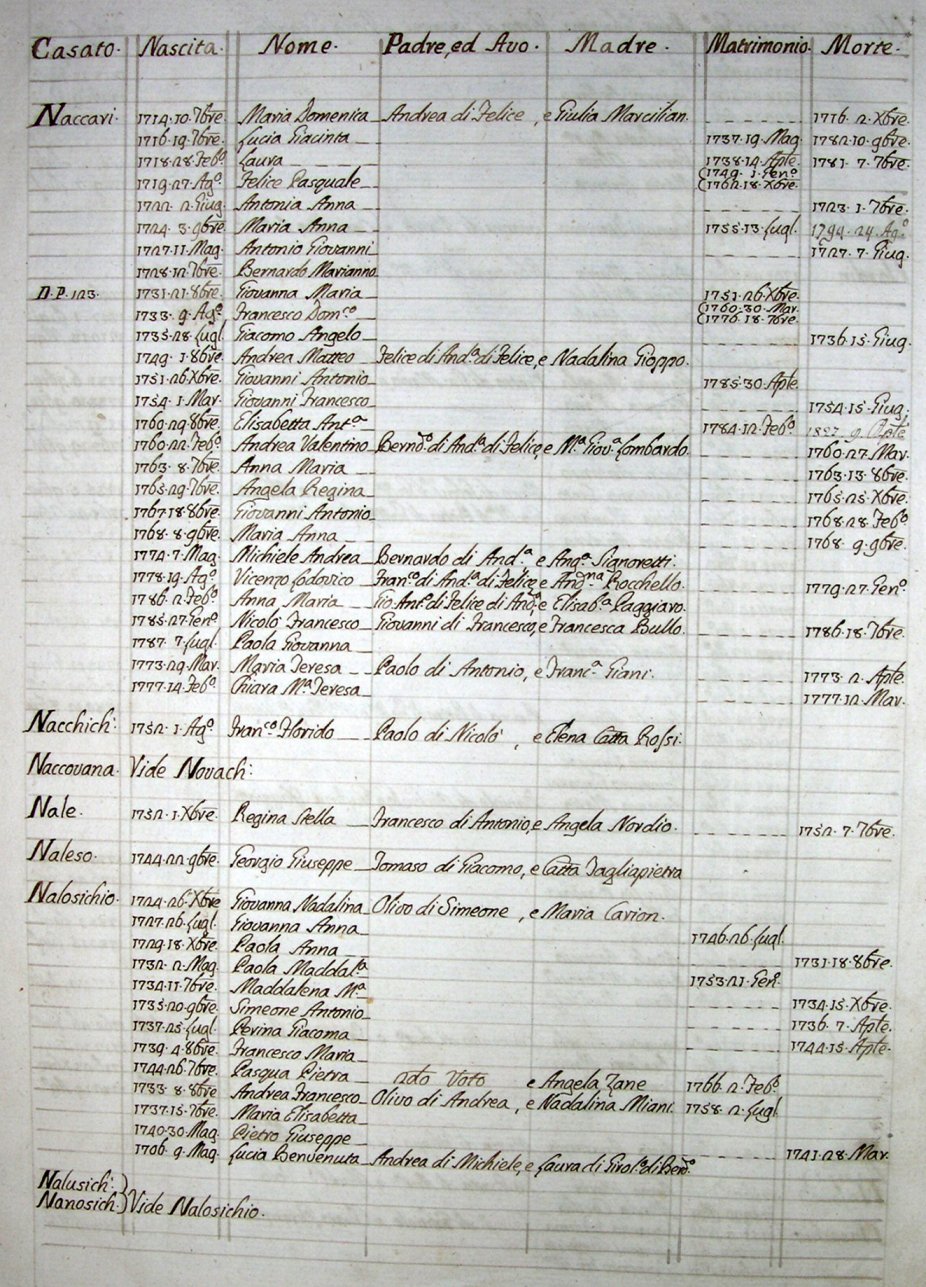 Casato. Nascita. Nome. Padre, ed Avo. Madre. Matrimonio. Morte.
Naccari. 1714. 10. 7bre. Maria Domenica Andrea di Felice, e Giulia Marcilian. 1716. 2. Xbre.
1716. 19. 7bre. Lucia Giacinta 1737. 19. Mag. 1782. 10. 9bre.
1718. 28. Febo. Laura 1738. 14. Aple. 1781. 7. 7bre.
1719. 27. Ago. Felice Pasquale (1749. 1. Geno.
(1762. 18. Xbre.
1722. 2. Giug. Antonia Anna 1723. 1. 7bre.
1724. 3. 9bre. Maria Anna 1755. 13. Lugl. 1794. 24. Ago.
1727. 11. Mag. Antonio Giovanni 1727. 7. Giug.
1728. 12. 7bre. Bernardo Marianno
D. P. 123. 1731. 21. 8bre. Giovanna Maria 1751. 26. Xbre.
1733. 9. Ago. Francesco Domco (1760. 30. Mar.
(1776. 18. 7bre.
1735. 28. Lugl. Giacomo Angelo 1736. 15. Giug.
1749. 1. 8bre. Andrea Matteo Felice di Anda. di Felice, e Nadalina Gioppo.
1751. 26. Xbre. Giovanni Antonio 1785. 30. Aple
1754. 1. Mar. Giovanni Francesco 1754. 15. Giug.
1760. 29. 8bre. Elisabetta Anta 1784. 12. Febo. 1827. 9. Aple
1760. 22. Febo. Andrea Valentino Berndo. di Anda. di Felice, e Ma. Giova. Lombardo. 1760. 27. Mar.
1763. 8. 7bre. Anna Maria 1763. 13. 8bre.
1765. 29. 7bre. Angela Regina 1765. 25. Xbre.
1767. 18. 8bre. Giovanni Antonio 1768. 28. Febo.
1768. 8. 9bre. Maria Anna 1768. 9. 9bre.
1774. 7. Mag. Michiele Andrea Bernardo di Anda. e Anga. Signoretti.
1778. 19. Ago. Vicenzo Lodovico Franco. di Anda. di Felice, e Rocchello. 1779. 27. Geno.
1786. 2. Febo. Anna Maria Gio. Anto. di Felice di Anda. e Elisaba. Paggiaro.
1785. 27. Geno. Nicolò Francesco Giovanni di Francesco, e Francesca Bullo. 1786. 18. 7bre.
1787. 7. Lugl. Paola Giovanna
1773. 29. Mar. Maria Teresa Paolo di Antonio, e Franca. Giani. 1773. 2. Aple.
1777. 14. Febo. Chiara Ma. Teresa 1777. 12. Mar.
Nacchich: 1752. 1. Ago. Franco. Florido Paolo di Nicolò, e Elena Catta Rossi.
Naccovana. Vide Novach:
Nale. 1752. 1. Xbre. Regina Stella Francesco di Antonio, e Angela Nordio. 1752. 7. 7bre.
Naleso. 1744. 22. 9bre. Georgio Giuseppe Tomaso di Giacomo, e Catta Tagliapietra
Nalosichio. 1724. 26. Xbre Giovanna Nadalina Olivo di Simeone, e Maria Carion.
1727. 26. Lugl. Giovanna Anna 1746. 26. Lugl.
1729. 18. Xbre. Paola Anna 1731. 18. 8bre.
1732. 2. Mag. Paola Maddala 1753. 21. Geno.
1734. 11. 7bre. Maddalena Ma. 1734. 15. Xbre.
1735. 20. 9bre. Simeone Antonio 1736. 7. Aple.
1737. 25. Lugl. Perina Giacoma 1744. 15. Aple.
1739. 4. 8bre. Francesco Maria
1744. 26. 7bre. Pasqua Pietra 2do Voto e Angela Zane 1766. 2. Febo.
1733. 8. 8bre Andrea Francesco Olivo di Andrea, e Nadalina Miani. 1758. 2. Lugl.
1737. 15. 7bre. Maria Elisabetta
1740. 30. Mag. Pietro Giuseppe
1706. 9. Mag. Lucia Benvenuta Andrea di Michiele, e Laura di Girola. di Bero. 1741. 28. Mar.
Nalusich:
Nanosich. } Vide Nalosichio.